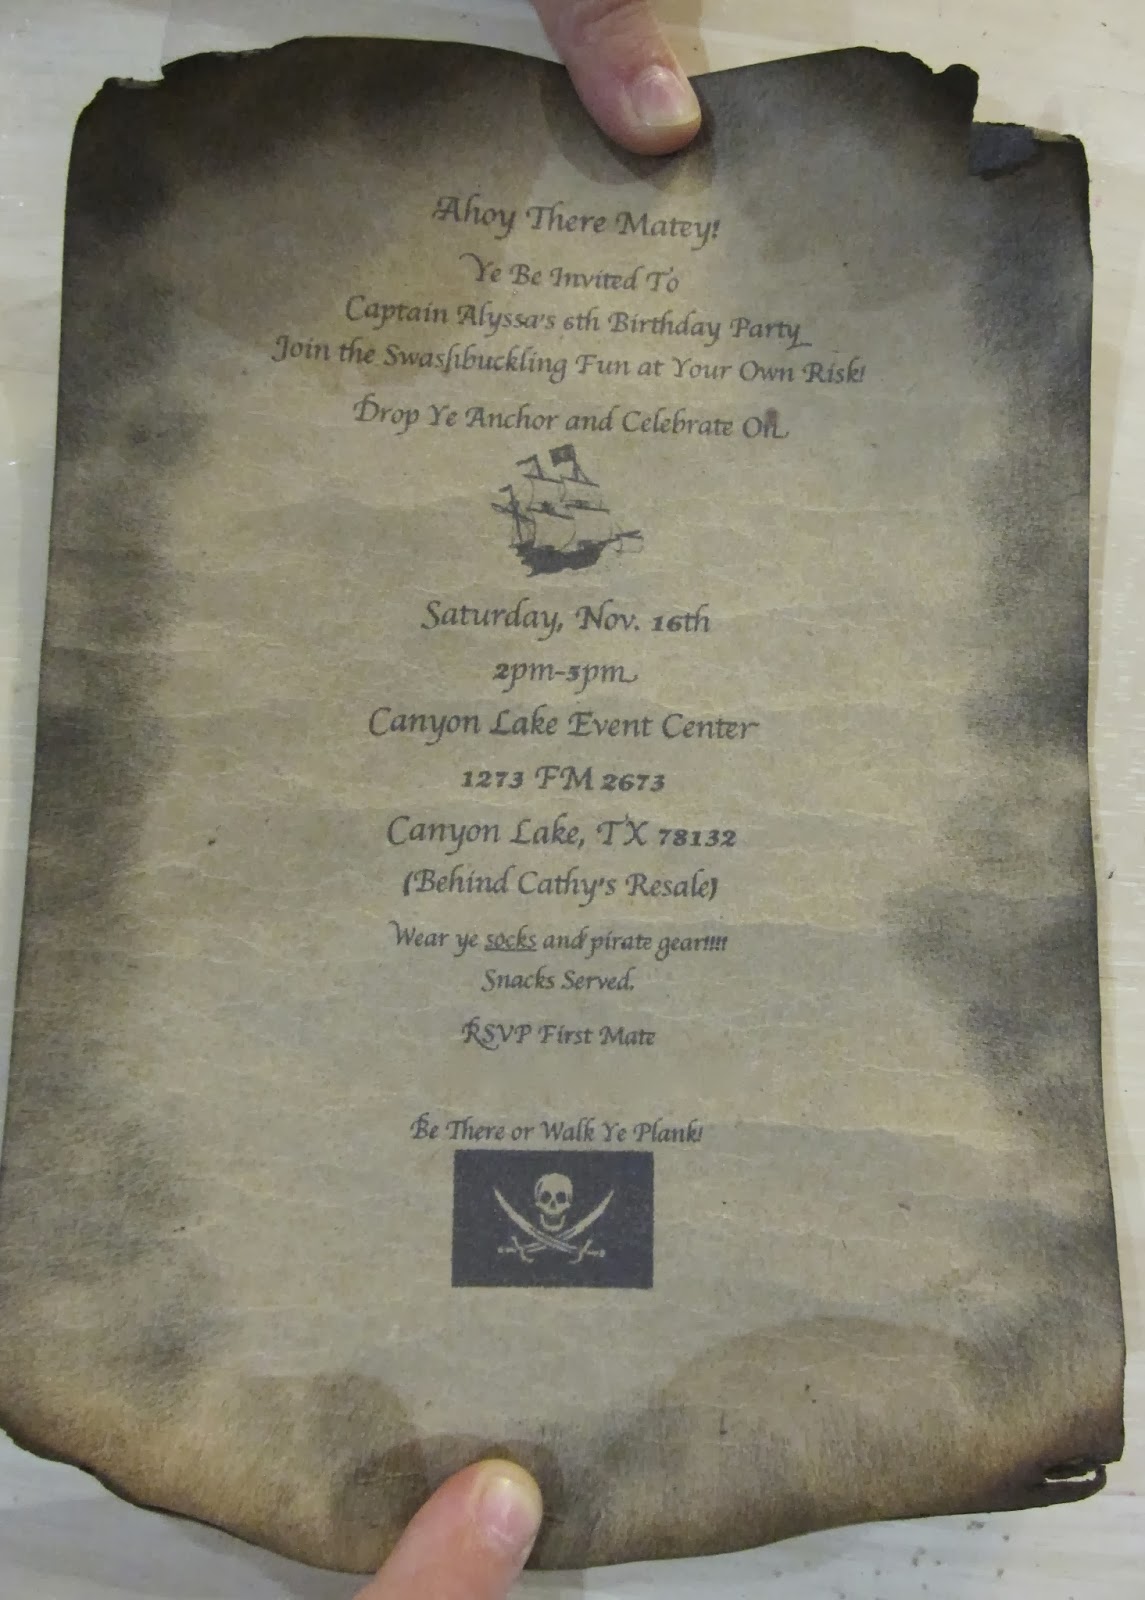 Ahoy There Matey!
Ye Be Invited To
Captain Alyssa's 6th Birthday Party
Join the Swashbuckling Fun at Your Own Risk!
Drop Ye Anchor and Celebrate On
Saturday, Nov. 16th
2pm-5pm
Canyon Lake Event Center
1273 FM 2673
Canyon Lake, TX 78132
(Behind Cathy's Resale)
Wear ye socks and pirate gear!!!!
Snacks Served.
RSVP First Mate
Be There or Walk Ye Plank!